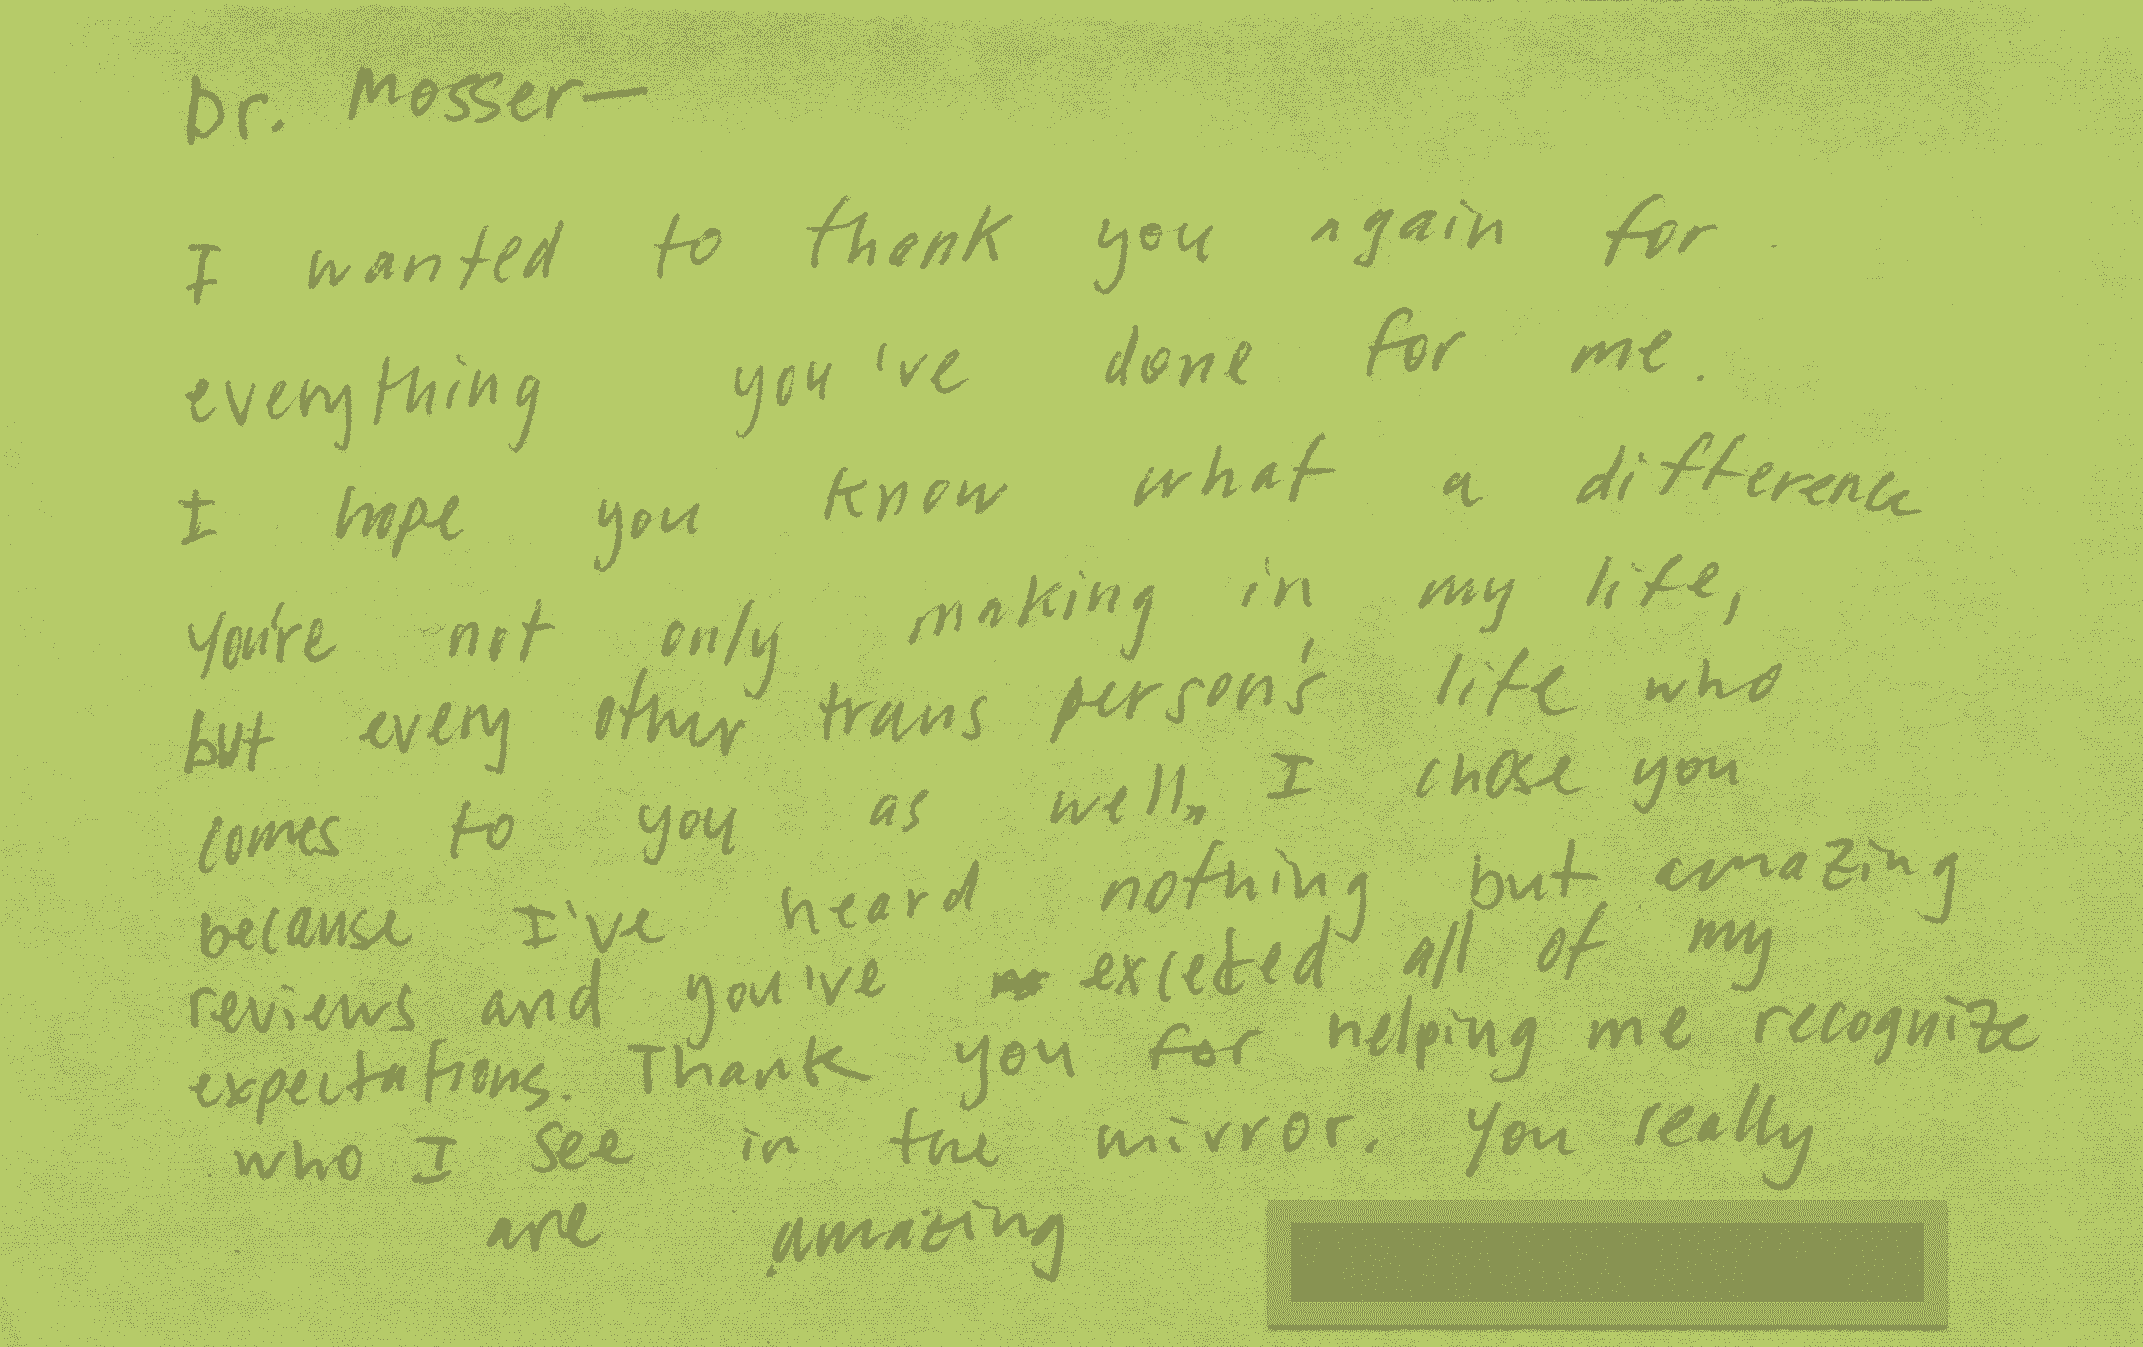 Dr. Mosser—
I wanted to thank you again for
everything you've done for me.
I hope you know what a difference
you're not only making in my life,
but every other trans person's life who
comes to you as well. I chose you
because I've heard nothing but amazing
reviews and you've exceeted all of my
expectations. Thank you for helping me recognize
who I see in the mirror. You really
are amazing